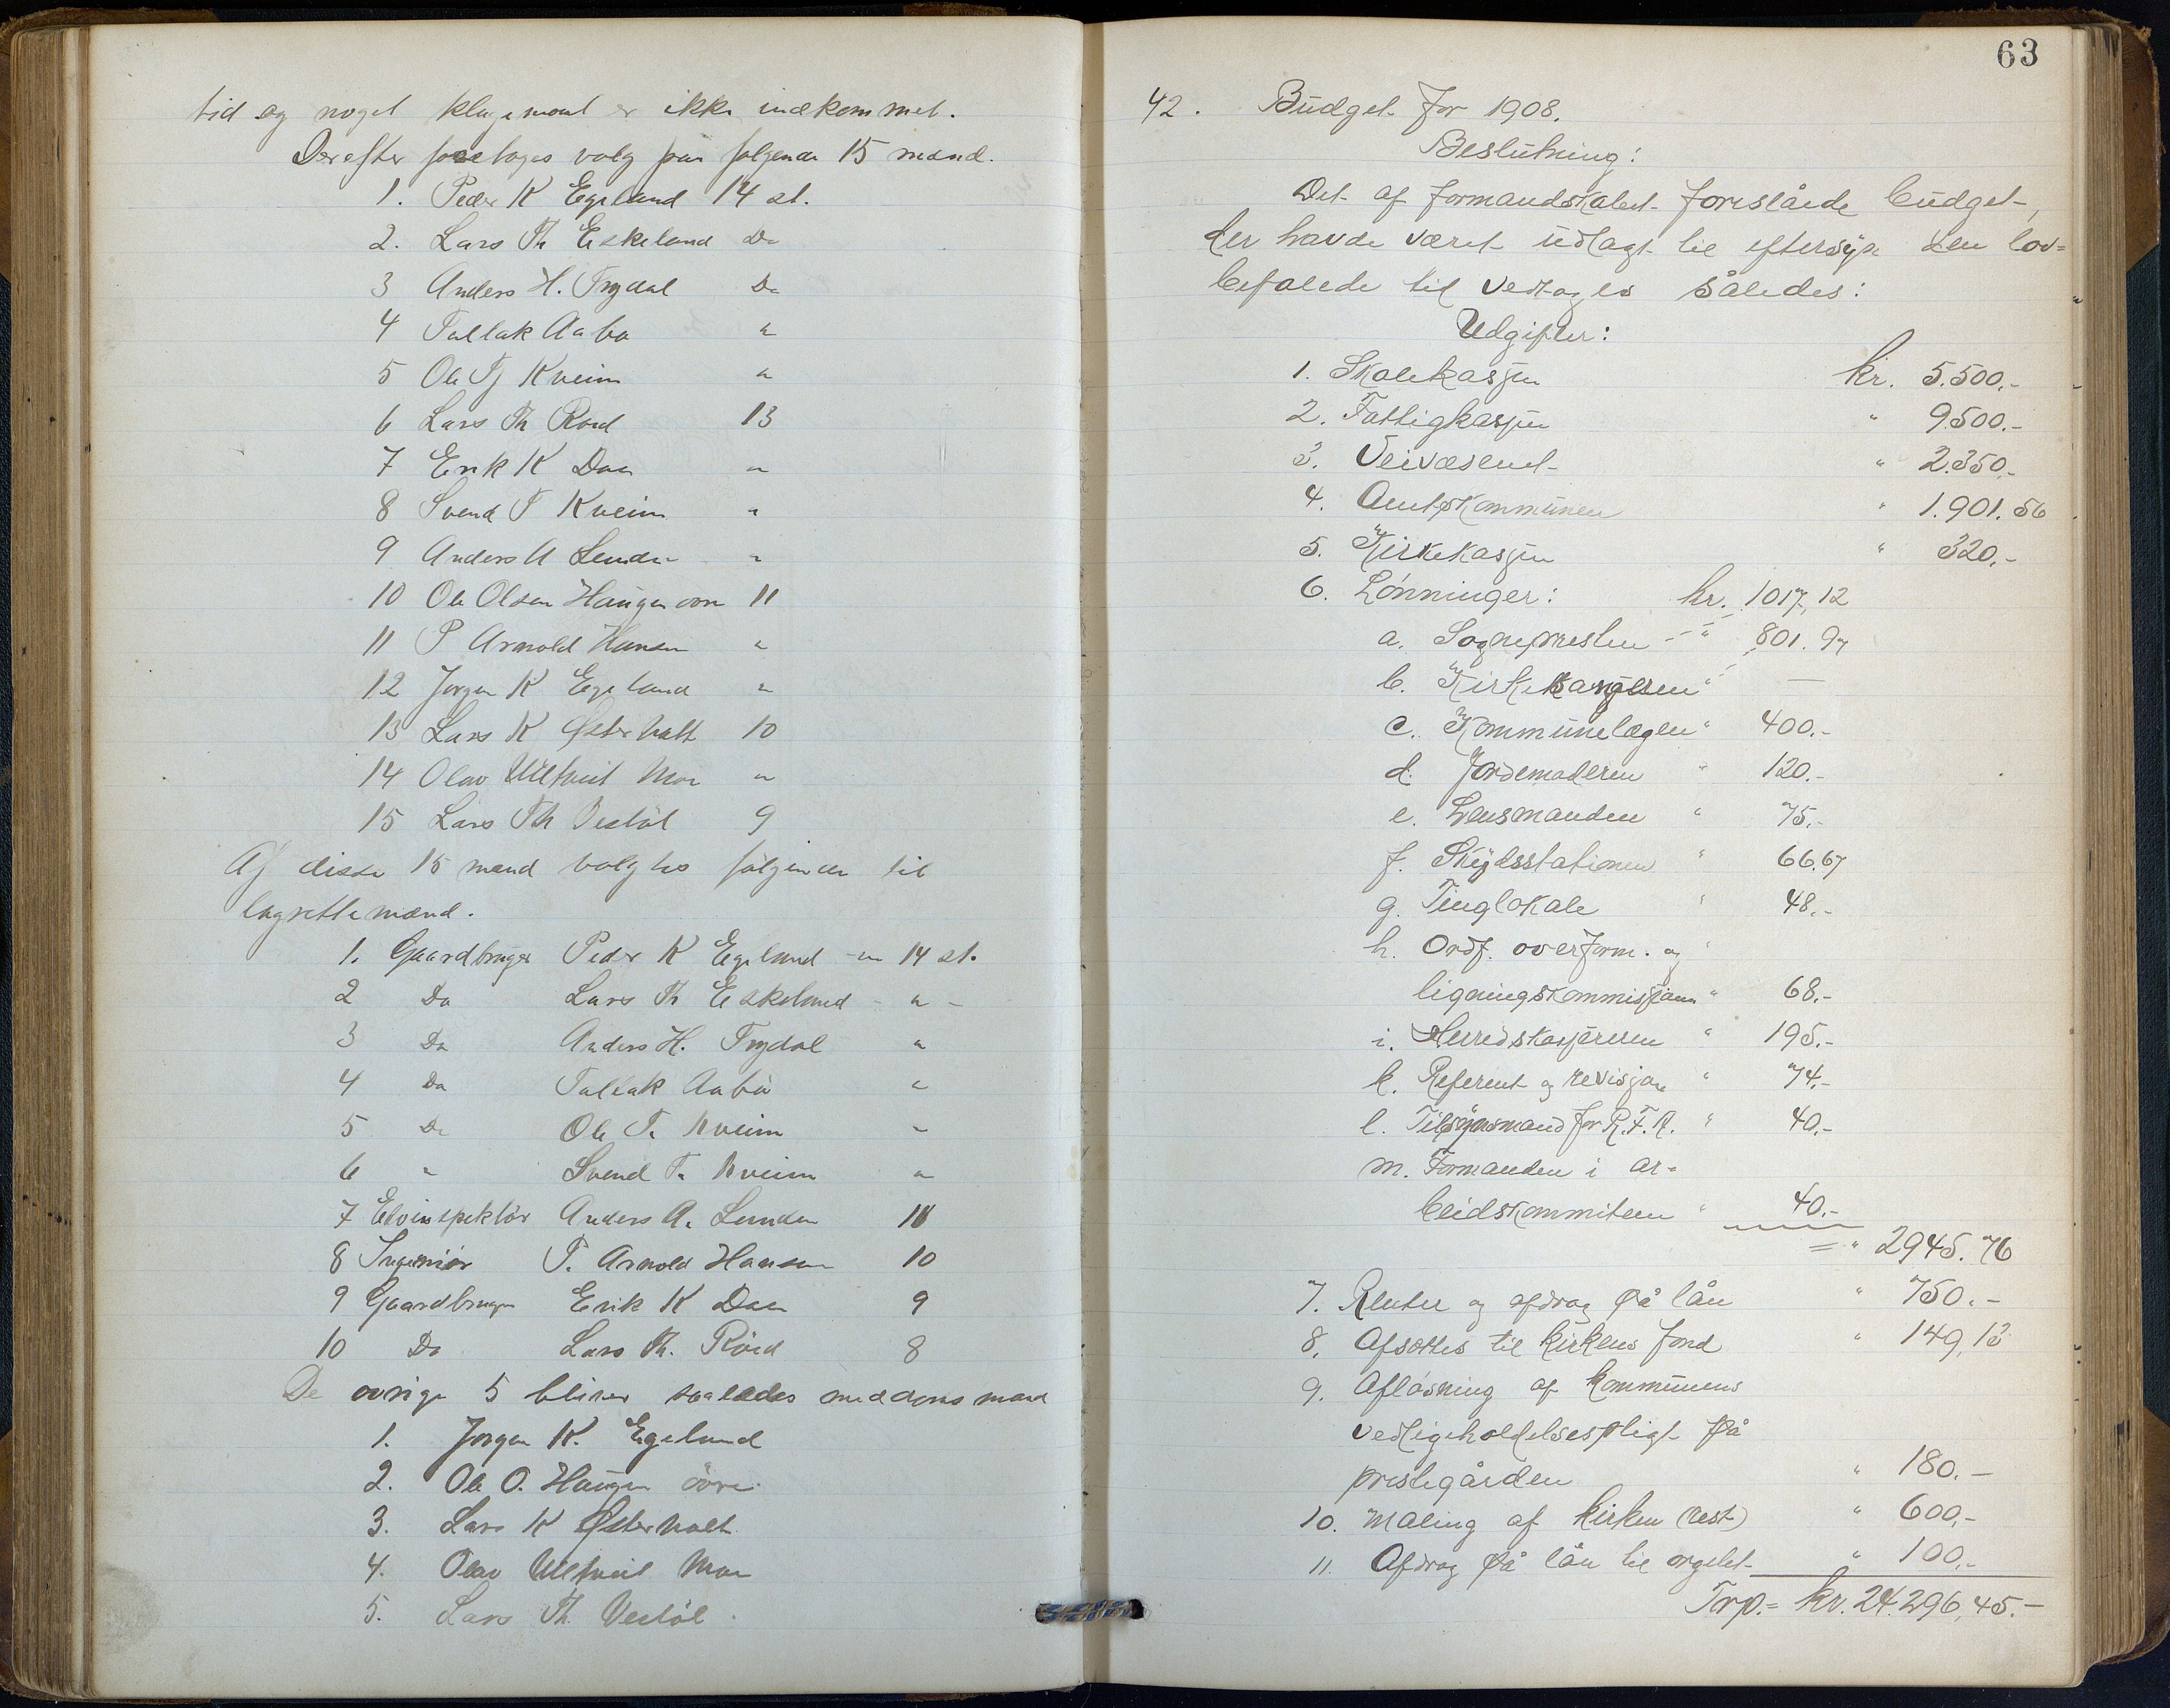 tid og noget klagemaal er ikke indkommet.
Derefter foretoges valg paa følgende 15 mænd.
1. Peder K Egeland 14 st.
2. Lars Th Eskeland Do
3 Anders H. Trydal Do
4 Tallak Aabø "
5 Ole Tj Kveim "
6 Lars Th Roed 13
7 Erik K Daa "
8 Svend T Kveim "
9 Anders A Lunden "
10 Ole Olsen Haugen øvre 11
11 P Arnold Hansen "
12 Jørgen K Egeland "
13 Lars K Østerholt 10
14 Olav Ulltveit Moe "
15 Lars Th Vestøl 9
Af disse 15 mænd valgtes følgende til
lagrettemænd.
1. Gaardbruger Peder K Egeland - m 14 st.
2 Do Lars Th Eskeland - " -
3 Do Anders H. Trydal "
4 Do Tallak Aabø "
5 Do Ole T. Kveim "
6 " Svend T. Kveim "
7 Elvinspektør Anders A. Lunden 11
8 Ingeniør P. Arnold Hansen 10
9 Gaardbruger Erik K Daa 9
10 Do Lars Th. Röed 8
De øvrige 5 bliver saaledes meddomsmænd
1. Jørgen K. Egeland
2. Ole O. Haugen övre.
3. Lars K Østerholt
4. Olav Ulltveit Moe
5. Lars Th. Vestöl.
63
42. Budget for 1908.
Beslutning:
Det af formandskabet foreslåede budget,
der havde været udlagt til eftersyn den lov=
befalede tid vedtages således:
Udgifter:
1. Skolekassen kr. 5.500,-
2. Fattigkassen " 9.500.-
3. Veivæsenet " 2.350,-
4. Amtskommunen " 1.901.56
5. Kirkekassen " 320,-
6. Lønninger: kr. 1017,12
a. Sognepresten - " 801.97
b. Kirkesangeren " —
c. Kommunelægen " 400.-
d. Jordemoderen " 120.-
e. Lensmanden " 75.-
f. Skydsstationen " 66.67
g. Tinglokale " 48.-
h. Ordf. overform. og "
ligningskommissionen " 68.-
i. Herredskassereren " 195.-
k. Referent og revisjon " 74.-
l. Tilsynsmand for R.F.K. " 40.-
m. Formanden i ar=
beidskommiteen " 40.-
= " 2945.76
7. Renter og afdrag på lån " 750.-
8. Afsættes til kirkens fond " 149,13
9. Afløsning af kommunens
vedligeholdelsespligt på
prestegården " 180.-
10. Maling af kirken (rest) " 600,-
11. Afdrag på lån til orgelet " 100,-
Trp. = kr. 24.296,45.-